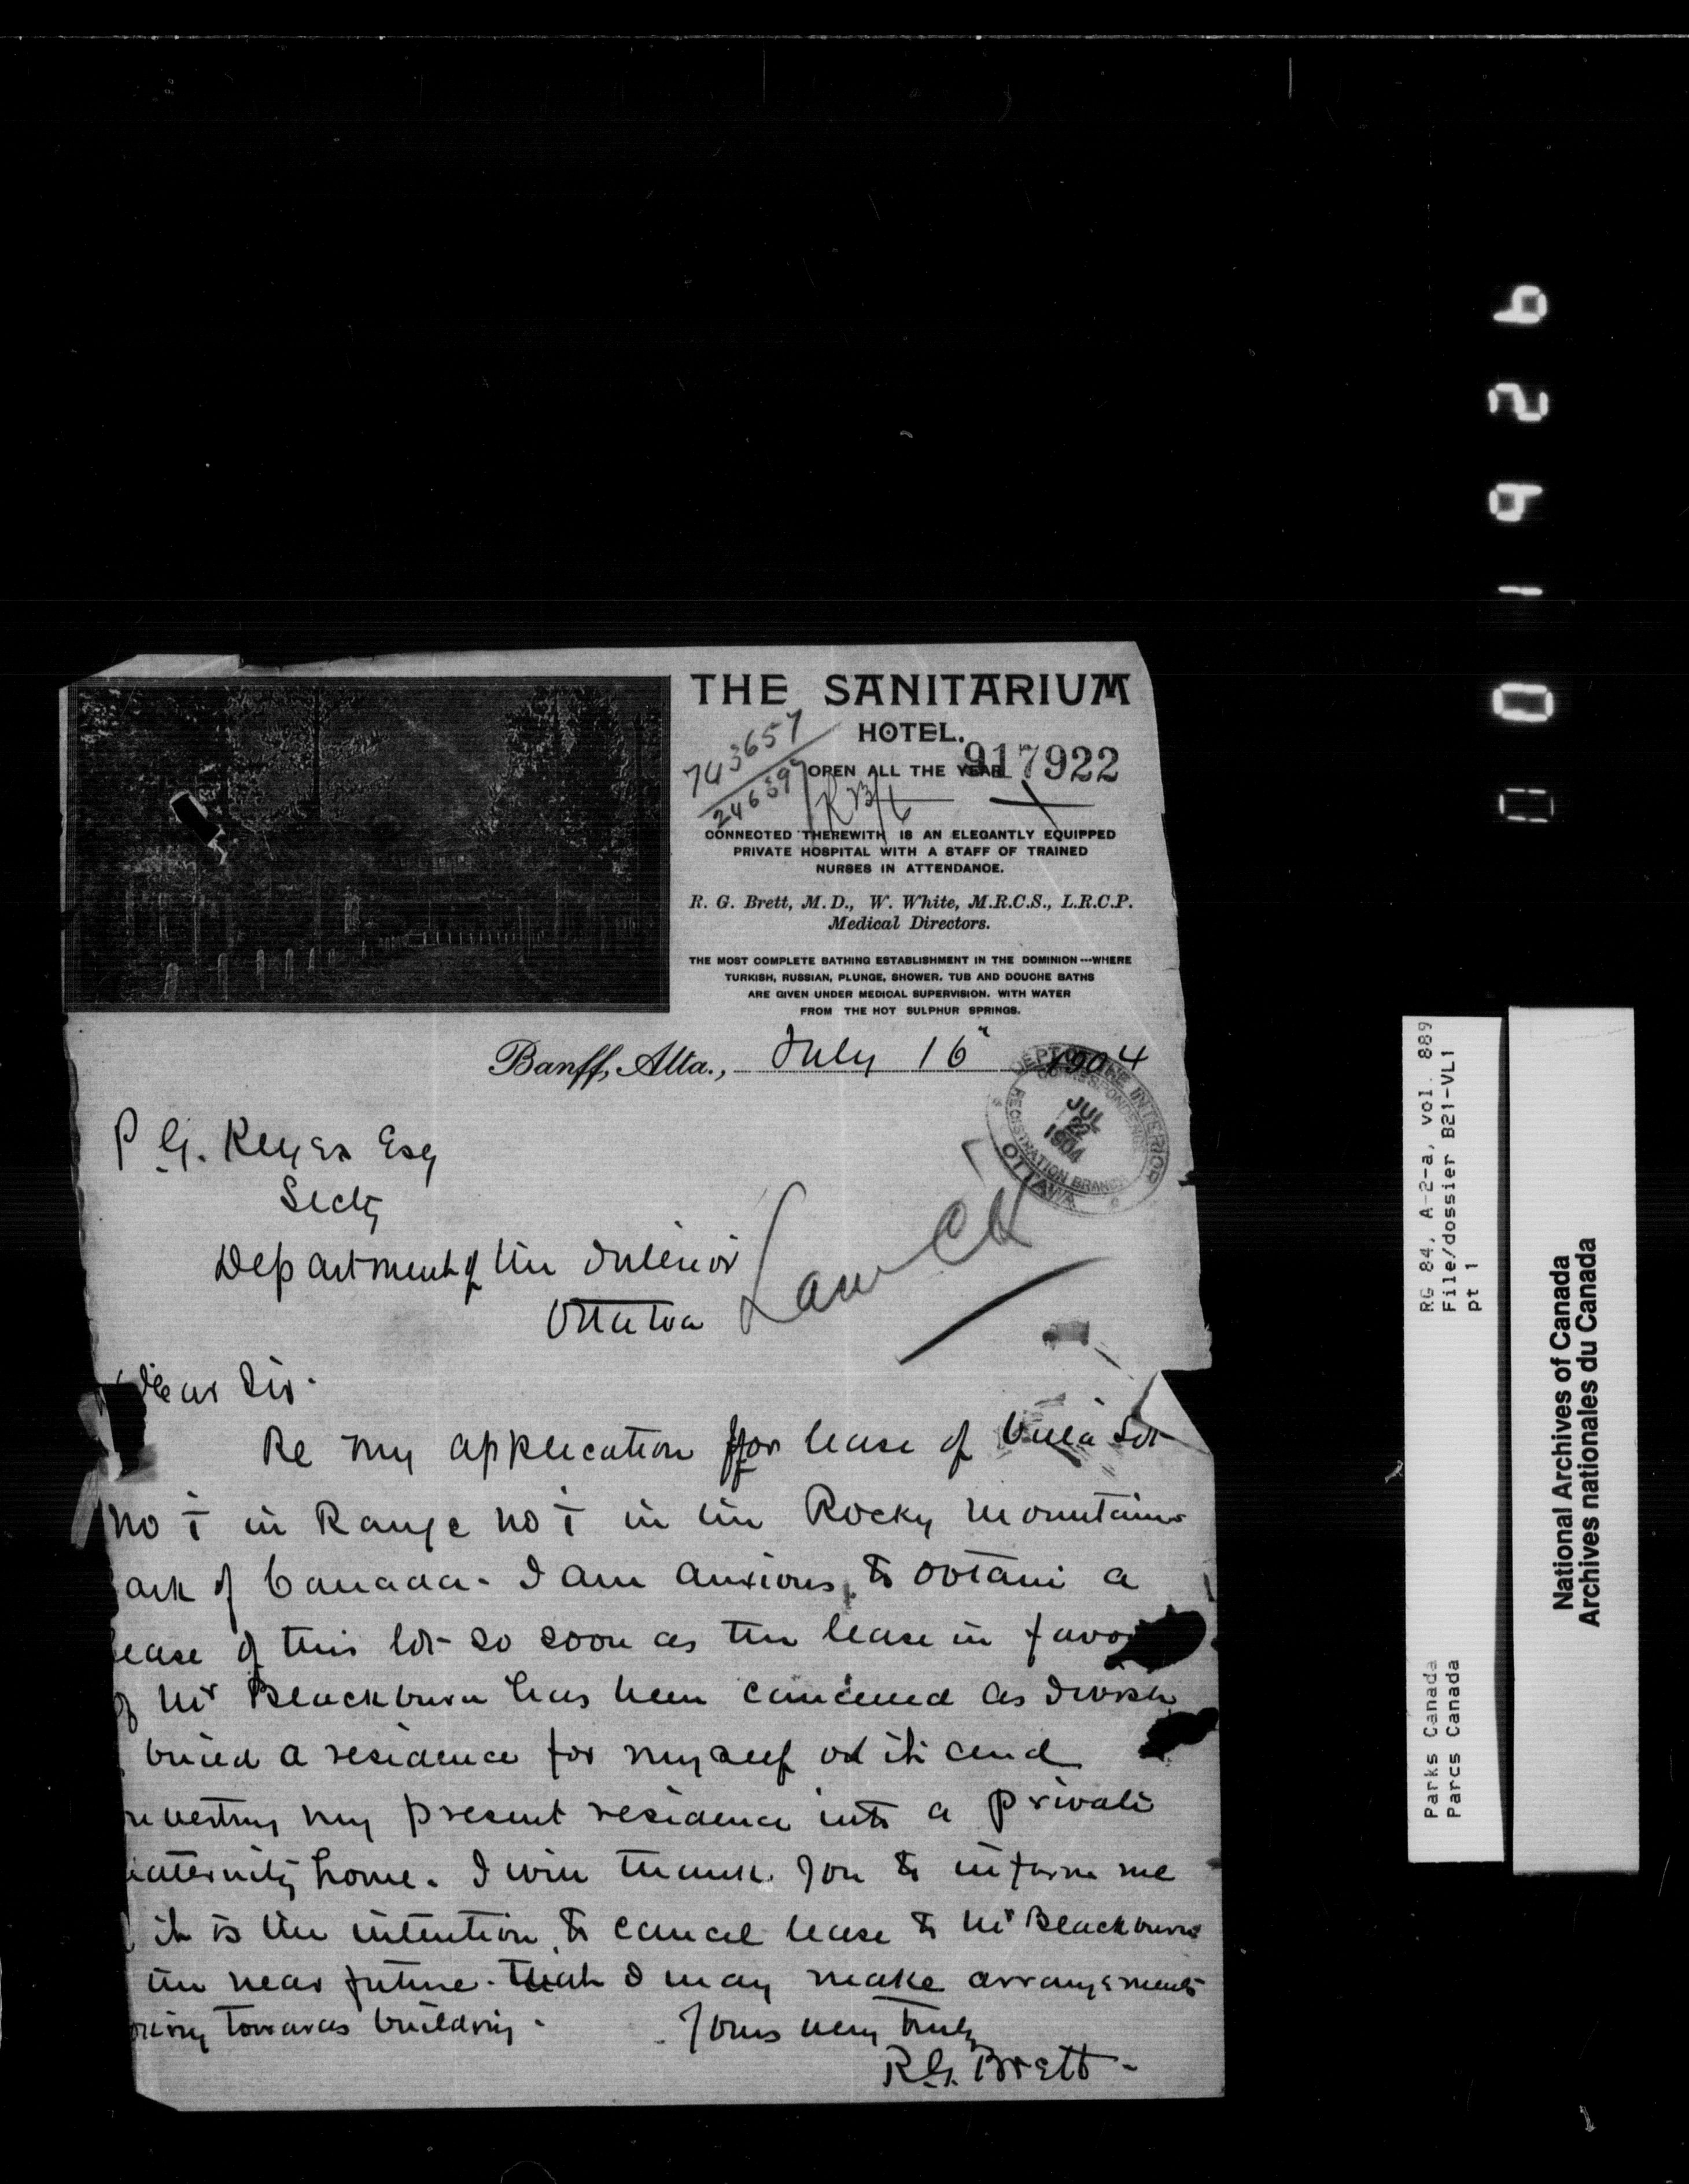 THE SANITARIUM
HOTEL.
917922
743657
246397
OPEN ALL THE YEAR
CONNECTED THEREWITH IS AN ELEGANTLY EQUIPPED
PRIVATE HOSPITAL WITH A STAFF OF TRAINED
NURSES IN ATTENDANCE.
R. G. Brett, M.D., W. White, M.R.C.S., L.R.C.P.
Medical Directors.
THE MOST COMPLETE BATHING ESTABLISHMENT IN THE DOMINION---WHERE
TURKISH, RUSSIAN, PLUNGE, SHOWER, TUB AND DOUCHE BATHS
ARE GIVEN UNDER MEDICAL SUPERVISION. WITH WATER
FROM THE HOT SULPHUR SPRINGS.
Banff, Alta., July 16" 1904
DEPT OF THE INTERIOR
CORRESPONDENCE
JUL
22
1904
REGISTRATION BRANCH
OTTAWA
P. G. Keyes Esq
Secty
Department of the Interior
Ottawa
Law Ck
Dear Sir.
Re my application for lease of Villa Lot
No 1 in Range No 1 in the Rocky Mountains
ark of Canada - I am anxious to obtain a
ease of this lot so soon as the lease in favo
of Mr Blackburn has been cancelled as I wish
build a residence for myself on it and
nverting my present residence into a private
aternity home. I will thank you to inform me
it is the intention to cancel lease to Mr Blackburn
the near future - that I may make arrangements
towards building -
Yours very truly
R.G. Brett -
001926
RG 84, A-2-a, vol. 889
File/dossier B21-VL1
pt 1
Parks Canada
Parcs Canada
National Archives of Canada
Archives nationales du Canada